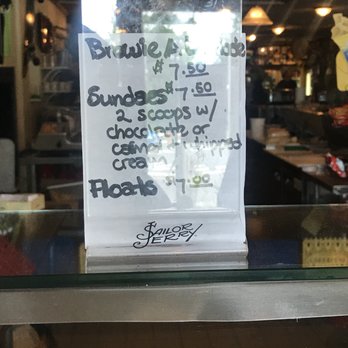 Brownie A La Mode
$7.50
Sundaes $7.50
2 scoops w/
chocolate or
whipped
cream
Floats $7.00
SAILOR
JERRY